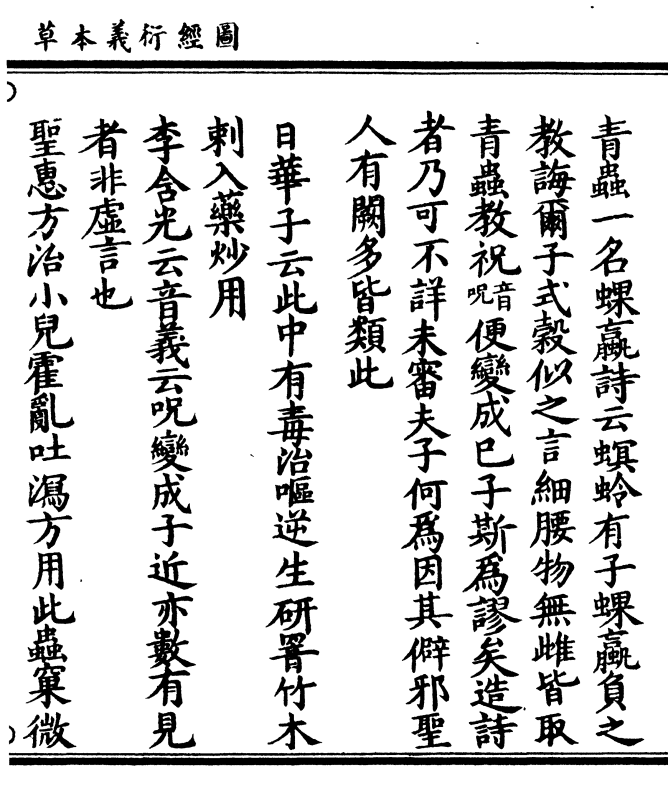 圖經衍義本草
青蟲一名蜾蠃詩云螟蛉有子蜾蠃負之
教誨爾子式穀似之言細腰物無雌皆取
青蟲教祝音呪便變成已子斯爲謬矣造詩
者乃可不詳未審夫子何爲因其僻邪聖
人有闕多皆類此
日華子云此中有毒治嘔逆生研罯竹木
刺入藥炒用
李含光云音義云呪變成子近亦數有見
者非虛言也
聖惠方治小兒霍亂吐瀉方用此蟲窠微